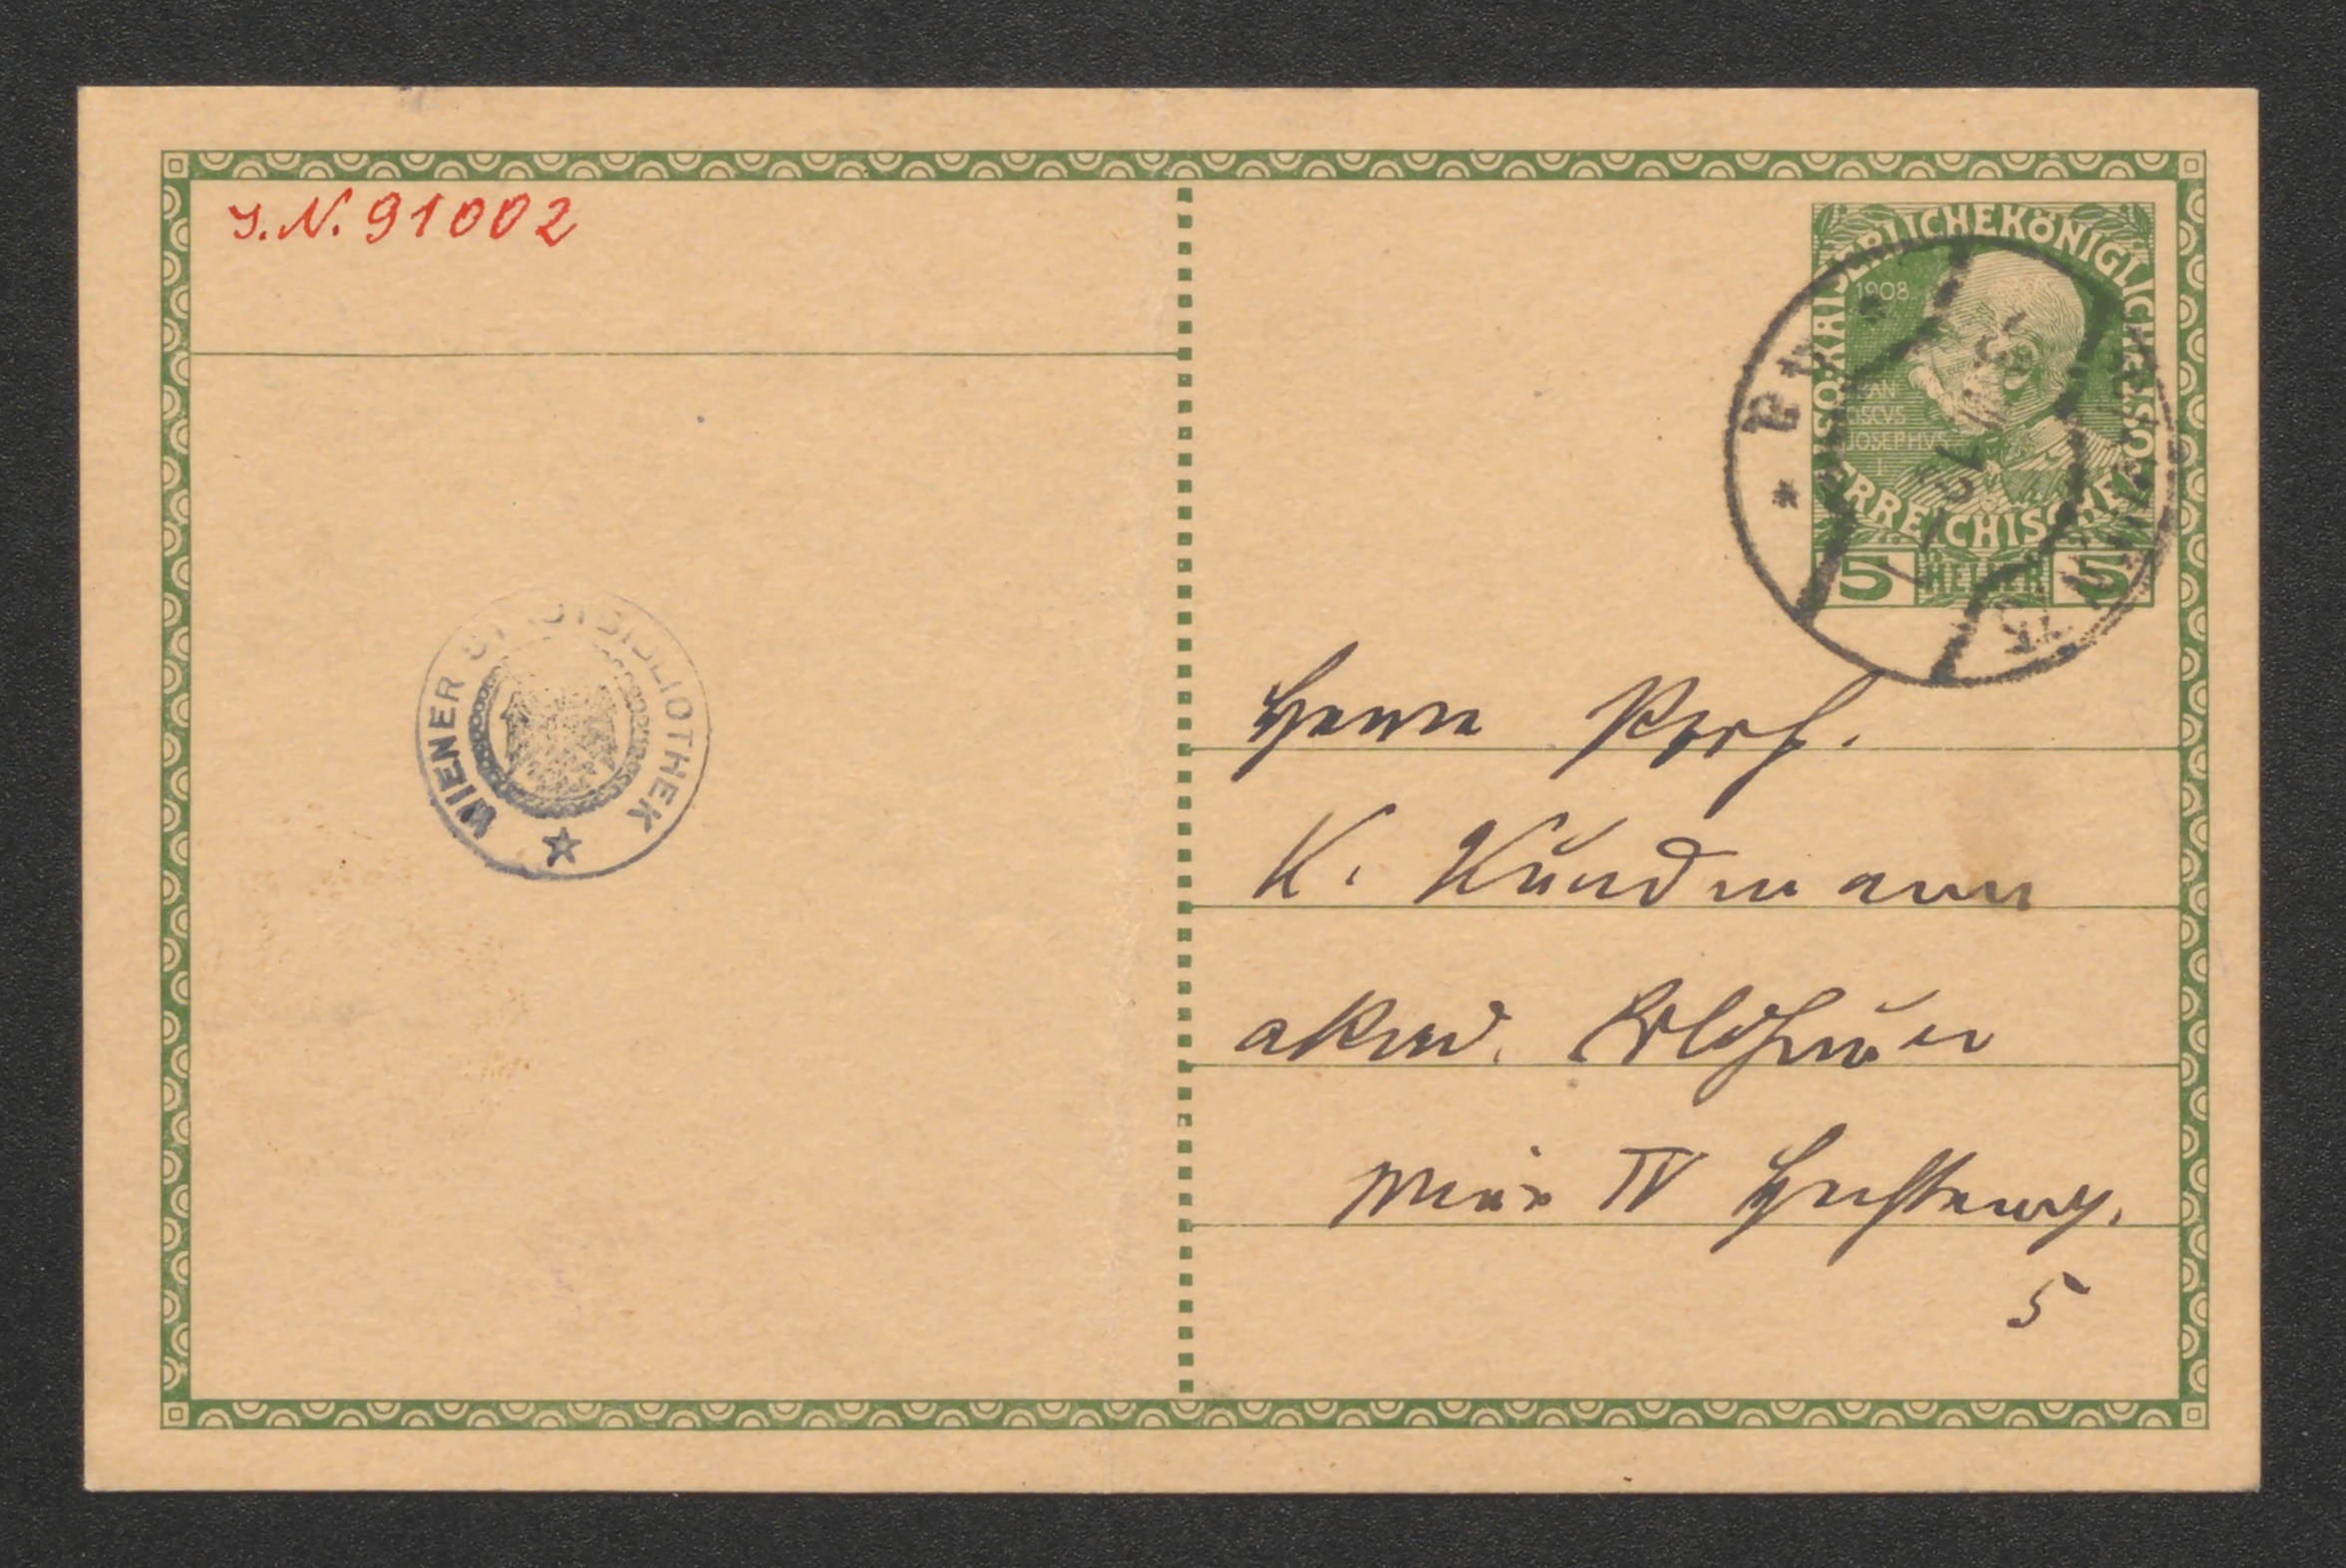 J.N. 91002
WIENER STADTBIBLIOTHEK
KAISERLICHE KÖNIGLICHE ÖSTERREICHISCHE POST
1908
FRAN
CISCVS
JOSEPHVS
I
5 HELLER 5
Herrn Prof.
K. Kundmann
akad. Bildhauer
Wien IV
5